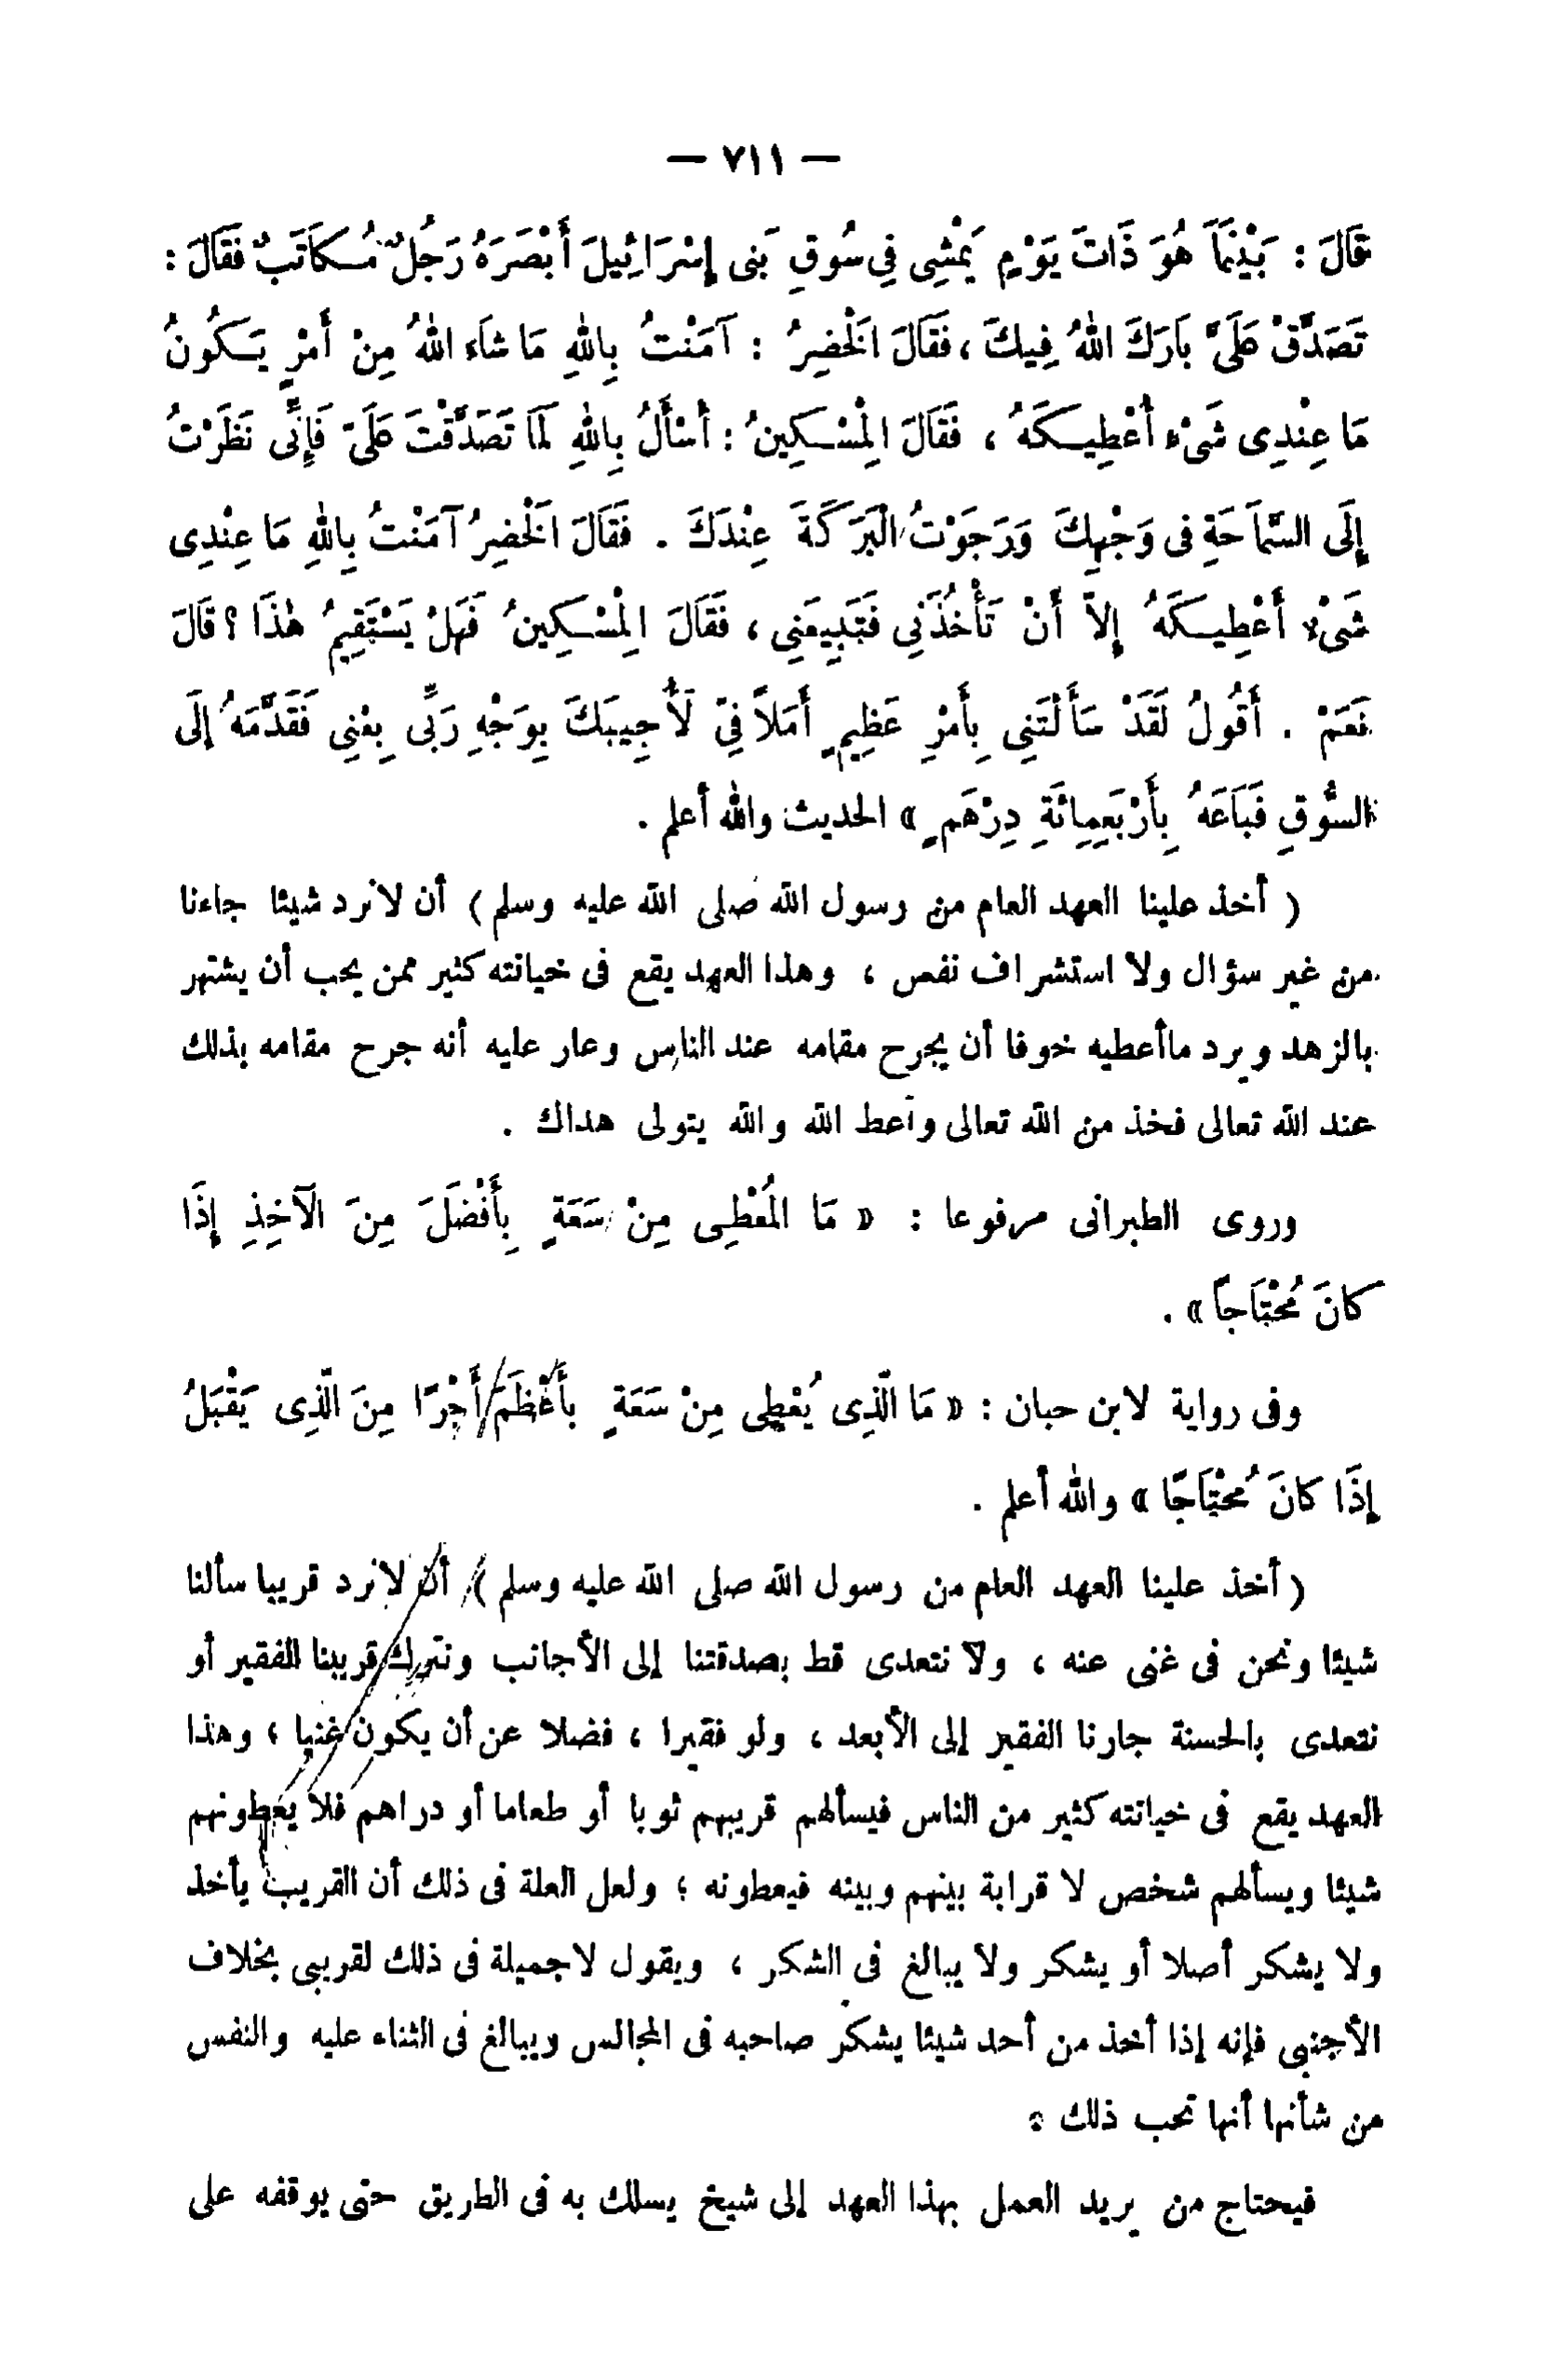 — ٧١١ —
قَالَ : بَيْنَمَا هُوَ ذَاتَ يَوْمٍ يَمْشِى فِى سُوقِ بَنِى إِسْرَائِيلَ أَبْصَرَهُ رَجُلٌ مُكَاتَبٌ فَقَالَ :
تَصَدَّقْ عَلَىَّ بَارَكَ اللهُ فِيكَ ، فَقَالَ الْخَضِرُ : آمَنْتُ بِاللهِ مَا شَاءَ اللهُ مِنْ أَمْرٍ يَكُونُ
مَا عِنْدِى شَىْءٌ أُعْطِيكَهُ ، فَقَالَ الْمِسْكِينُ : أَسْأَلُ بِاللهِ لَمَا تَصَدَّقْتَ عَلَىَّ فَإِنِّى نَظَرْتُ
إِلَى السَّمَاحَةِ فِى وَجْهِكَ وَرَجَوْتُ الْبَرَكَةَ عِنْدَكَ . فَقَالَ الْخَضِرُ آمَنْتُ بِاللهِ مَا عِنْدِى
شَىْءٌ أُعْطِيكَهُ إِلاَّ أَنْ تَأْخُذَنِى فَتَبِيعَنِى ، فَقَالَ الْمِسْكِينُ فَهَلْ يَسْتَقِيمُ هٰذَا ؟ قَالَ
نَعَمْ . أَقُولُ لَقَدْ سَأَلْتَنِى بِأَمْرٍ عَظِيمٍ أَمَلاً فِىَّ لَأُجِيبَكَ بِوَجْهِ رَبِّى بِعْنِى فَقَدَّمَهُ إِلَى
السُّوقِ فَبَاعَهُ بِأَرْبَعِمِائَةِ دِرْهَمٍ » الحديث والله أعلم .
( أخذ علينا العهد العام من رسول الله صلى الله عليه وسلم ) أن لا نرد شيئا جاءنا
من غير سؤال ولا استشراف نفس ، وهذا العهد يقع فى خيانته كثير ممن يحب أن يشتهر
بالزهد ويرد ماأعطيه خوفا أن يجرح مقامه عند الناس وعار عليه أنه جرح مقامه بذلك
عند الله تعالى فخذ من الله تعالى وأعط الله والله يتولى هداك .
وروى الطبرانى مرفوعا : « مَا الْمُعْطِى مِنْ سَعَةٍ بِأَفْضَلَ مِنَ الآخِذِ إِذَا
كانَ مُحْتَاجاً » .
وفى رواية لابن حبان : « مَا الَّذِى يُعْطِى مِنْ سَعَةٍ بِأَعْظَمَ أَجْرًا مِنَ الَّذِى يَقْبَلُ
إِذَا كانَ مُحْتَاجًا » والله أعلم .
( أخذ علينا العهد العام من رسول الله صلى الله عليه وسلم ) أن لا نرد قريبا سألنا
شيئا ونحن فى غنى عنه ، ولا نتعدى قط بصدقتنا إلى الأجانب ونترك قريبنا الفقير أو
نتعدى بالحسنة جارنا الفقير إلى الأبعد ، ولو فقيرا ، فضلا عن أن يكون غنيا ؛ وهذا
العهد يقع فى خيانته كثير من الناس فيسألهم قريبهم ثوبا أو طعاما أو دراهم فلا يعطونهم
شيئا ويسألهم شخص لا قرابة بينهم وبينه فيعطونه ؛ ولعل العلة فى ذلك أن القريب يأخذ
ولا يشكر أصلا أو يشكر ولا يبالغ فى الشكر ، ويقول لاجميلة فى ذلك لقريبى بخلاف
الأجنبى فإنه إذا أخذ من أحد شيئا يشكر صاحبه فى المجالس ويبالغ فى الثناء عليه والنفس
من شأنها أنها تحب ذلك .
فيحتاج من يريد العمل بهذا العهد إلى شيخ يسلك به فى الطريق حتى يوقفه على